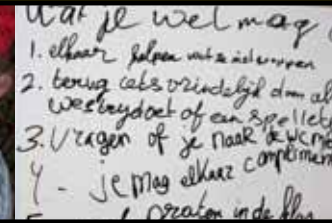 Wat je wel mag
1. elkaar helpen
2. terug iets vrindelijk doen al
wesbeydoet of een spelletj
3. Vragen of je naar de wc me
4 - je mag elkaar complimen
praten in de klas